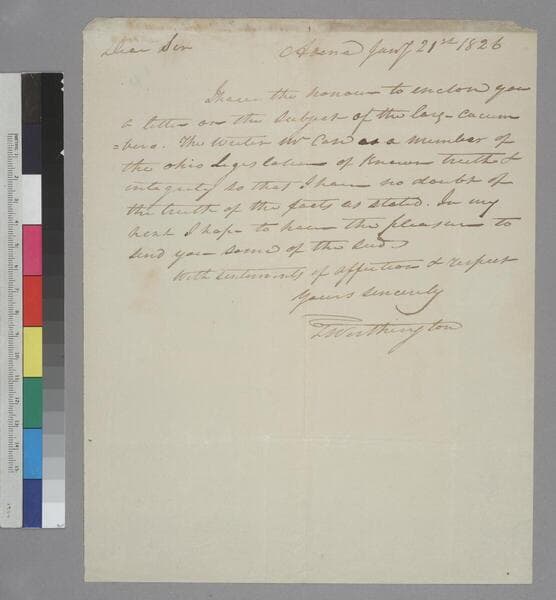 Dear Sir Adena Jany 21st 1826
I have the honour to enclose you
a letter on the subject of the large cucum
bers. The writer Mr Case is a member of
the Ohio Legislature of Known truth &
integrity so that I have no doubt of
the truth of the facts as stated. In my
next I hope to have the pleasure to
send you some of the seed.
With sentiments of affection & respect
Yours sincerely
T Worthington